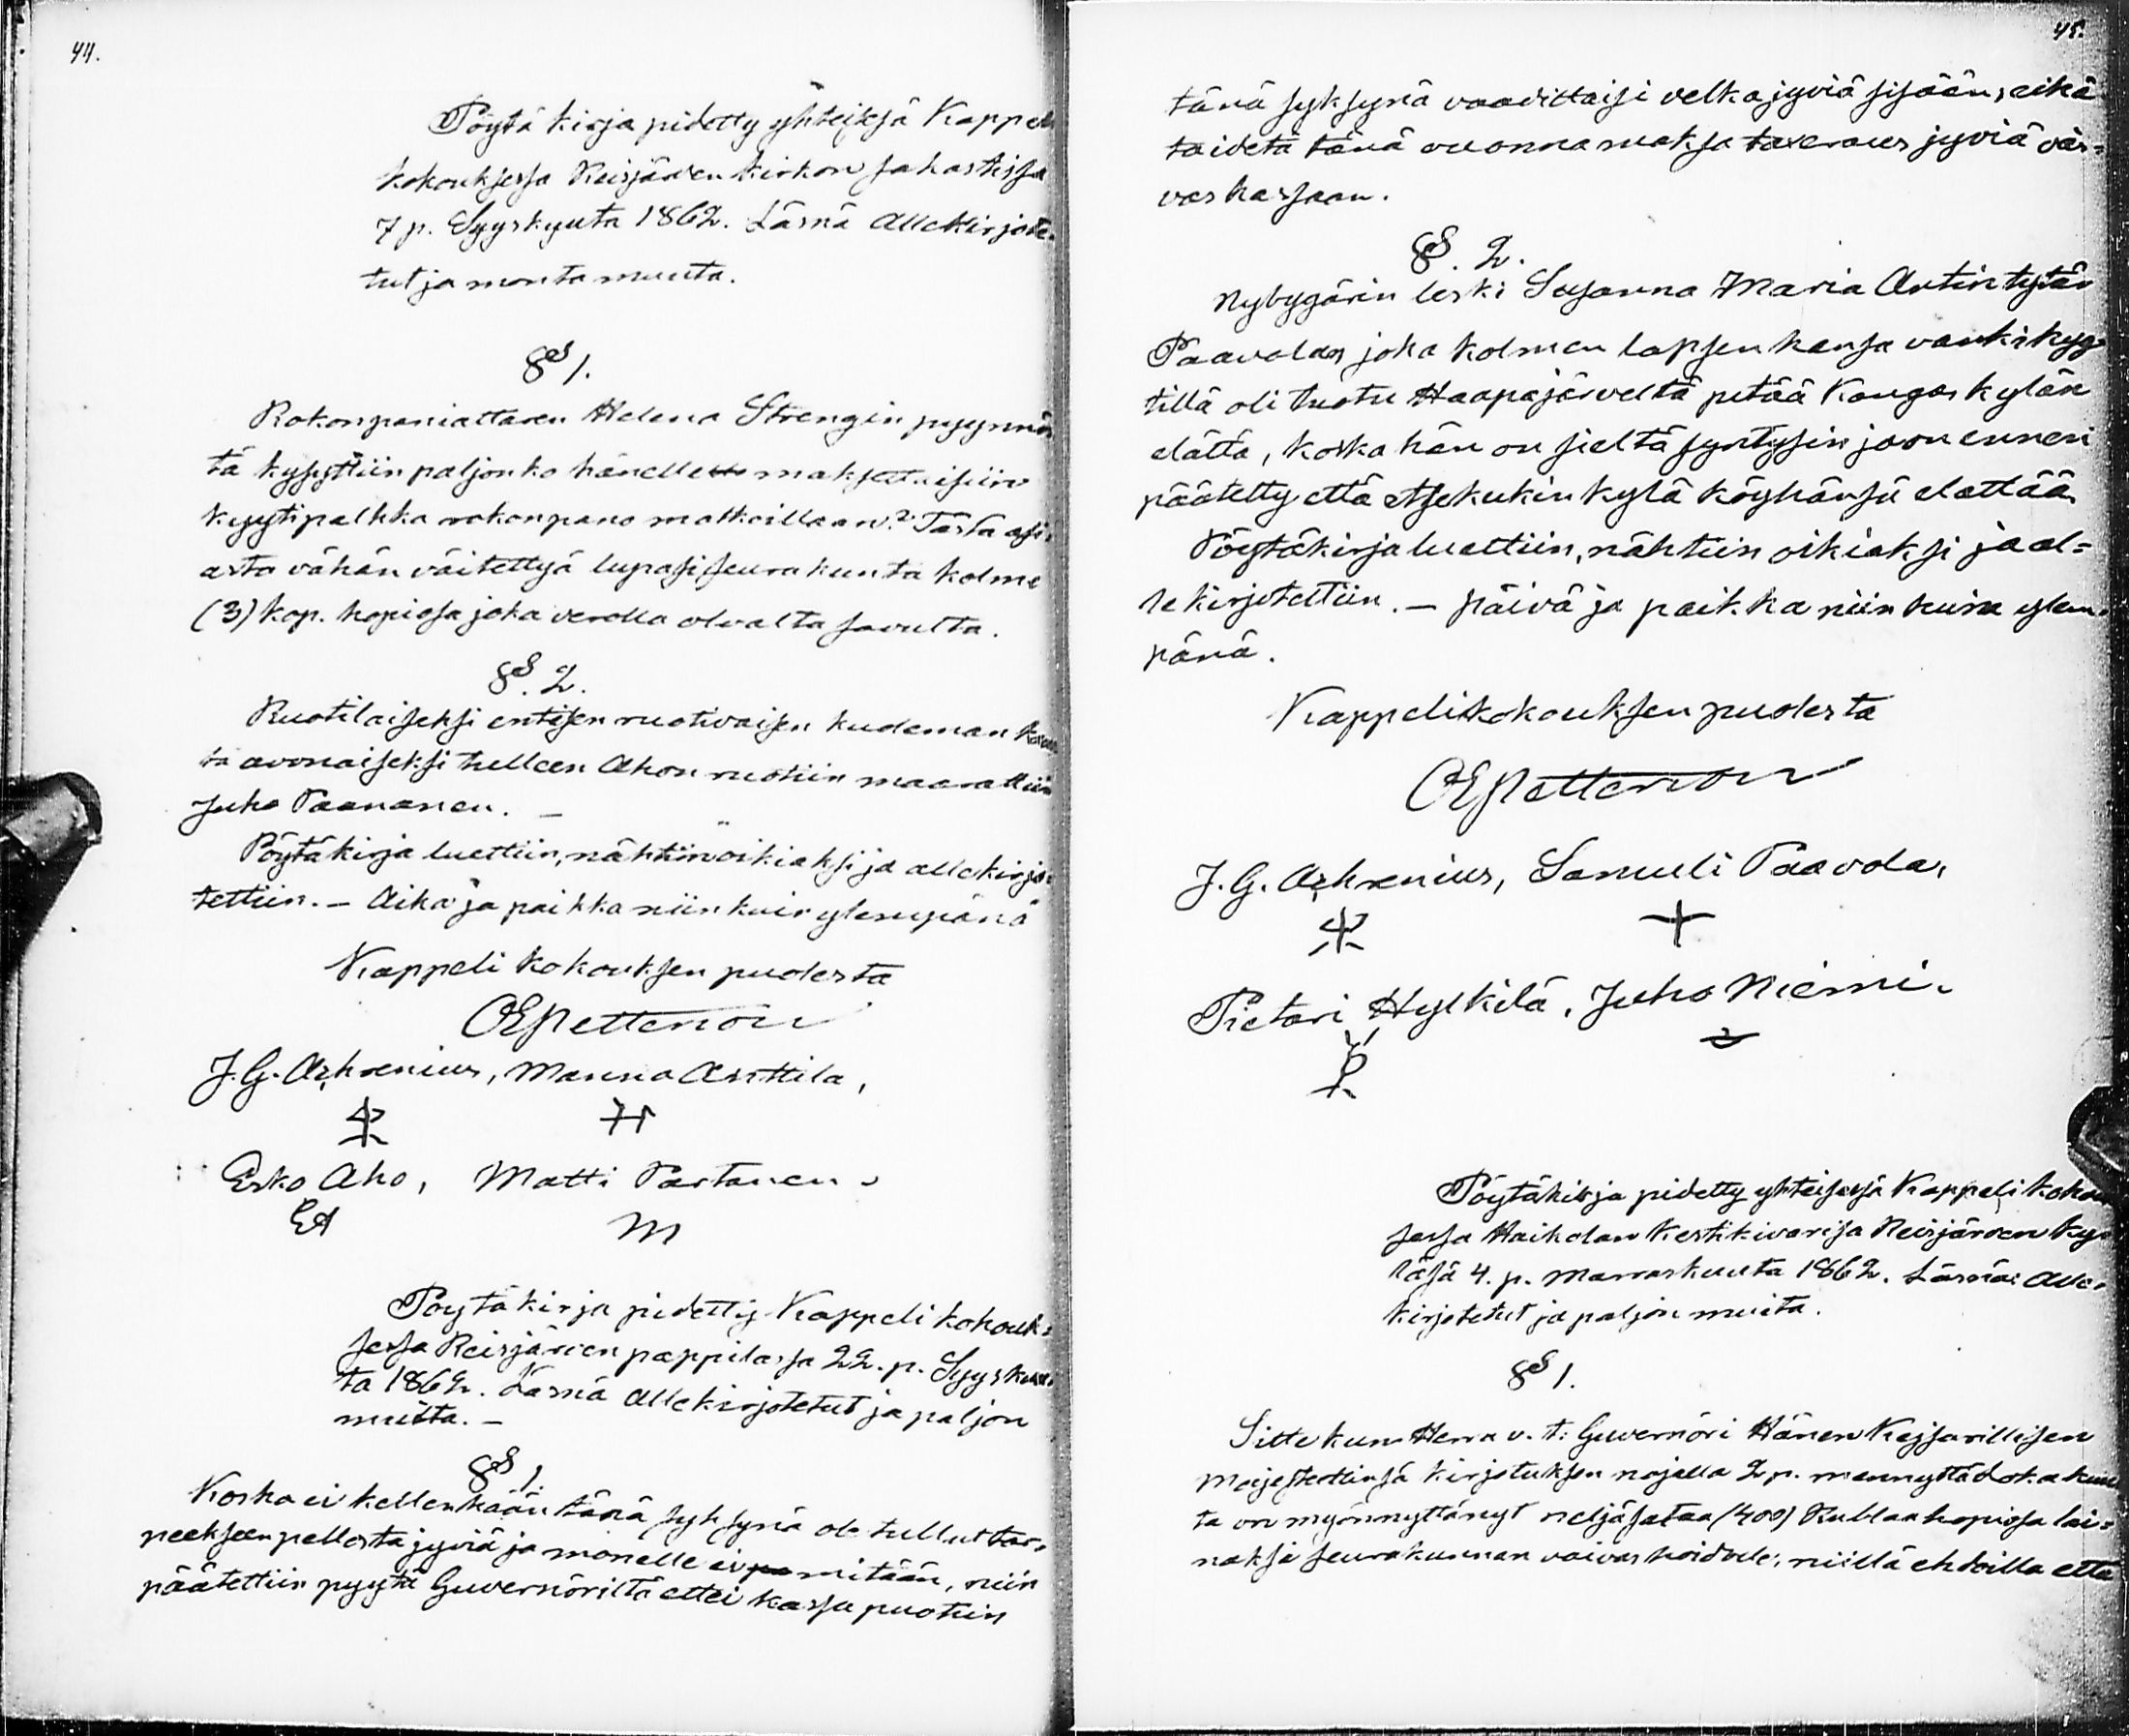 44.
Pöytäkirja pidetty yhteisesä Kappeli
kokouksessa Reisjärven kirkon sakastissa
7 p. Syyskuuta 1862. Läsnä allekirjote-
tut ja monta muuta.
§§ 1.
Rokonpaniattaren Helena Strengin pyynnös
tä kysyttiin paljonko hänelle maksettaisiin
kyytipalkka rokonpano matkoillaan? Tästä asi-
asta vähän väitettyä lupasi seurakunta kolme
(3) kop. hopiasa joka verolla olvalta savulta.
§§. 2.
Ruotilaiseksi entisen ruotivaisen kudeman
ta avonaiseksi tulleen Ahon ruotiin maarattiin
Juho Paananen. —
Pöytäkirja luettiin, nähtiin oikiaksi ja allekirjo-
tettiin. — Aika ja paikka niinkuin ylempänä
Kappeli kokouksen puolesta
OEPetterson
J. G. Ahrenius, Manna Anttila,
Esko Aho, Matti Partanen.
EA M
Pöytäkirja pidetty Kappeli kokouk-
sessa Reisjärven pappilassa 22. p. Syysku
ta 1862. Läsnä allekirjotetut ja paljon
muita. —
§§ 1.
Koska ei kellenkään tänä syksynä ole tullut tar-
peekseen pellosta jyviä ja monelle ei mitään, niin
päätettiin pyytä Guvernöriltä ettei kassa puotiin
45.
tänä syksynä vaadittaisi velka jyviä sisään, eikä
taideta tänä vuonna maksa taxeraus jyviä vai-
vaskassaan.
§§. 2.
Nybygärin leski Susanna Maria Antintytär
Paavolan joka kolmen lapsen kansa vankikyy
tillä oli tuotu Haapajärveltä pitää Kangaskylän
elättä, koska hän on sieltä syntysin ja on ennen
päätetty että itsekukin kylä köyhänsä elättää.
Pöytäkirja luettiin, nähtiin oikiaksi ja al-
lekirjotettiin. — päivä ja paikka niinkuin ylem-
pänä.
Kappelikokouksen puolesta
OEPetterson
J. G. Ahrenius, Samuli Paavola,
Pietari Hylkilä, Juho Niemi.
Pöytäkirja pidetty yhteisessä Kappeli kokou
sessa Haikolan Kestikivarisa Reisjärven ky-
läsä 4. p. Marraskuuta 1862. Läsnä: Alle-
kirjotetut ja paljon muita.
§§ 1.
Sitte kun Herra v. t. Guvernöri Hänen Kejsarillisen
Majestettinsä kirjotuksen nojalla 2 p. mennyttä lokakuu
ta on myönnyttänyt neljäsataa (400) Rublaa hopiasa lai-
naksi seurakunnan vaivashoidole, niillä ehdoilla että